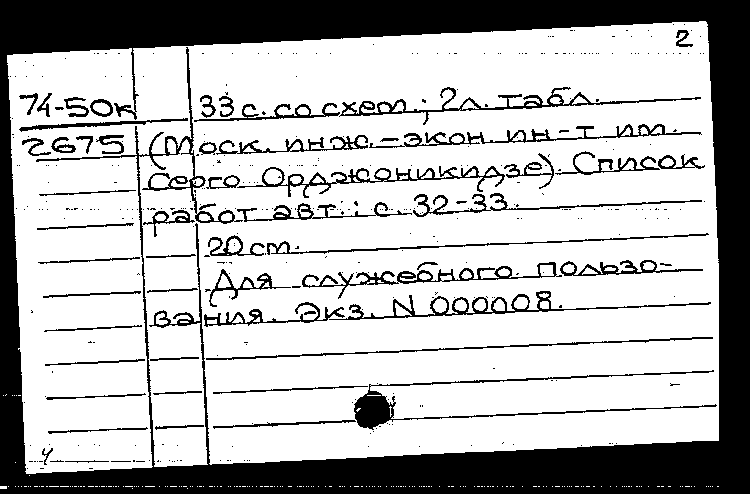 2
74-50к 33 с. со схем.; 2л. табл.
2675 (Моск. инж.-экон. ин-т им.
Серго Орджоникидзе). Список
работ авт.: с. 32-33.
20 cm.
Для служебного пользо-
вания. Экз. N 000008.